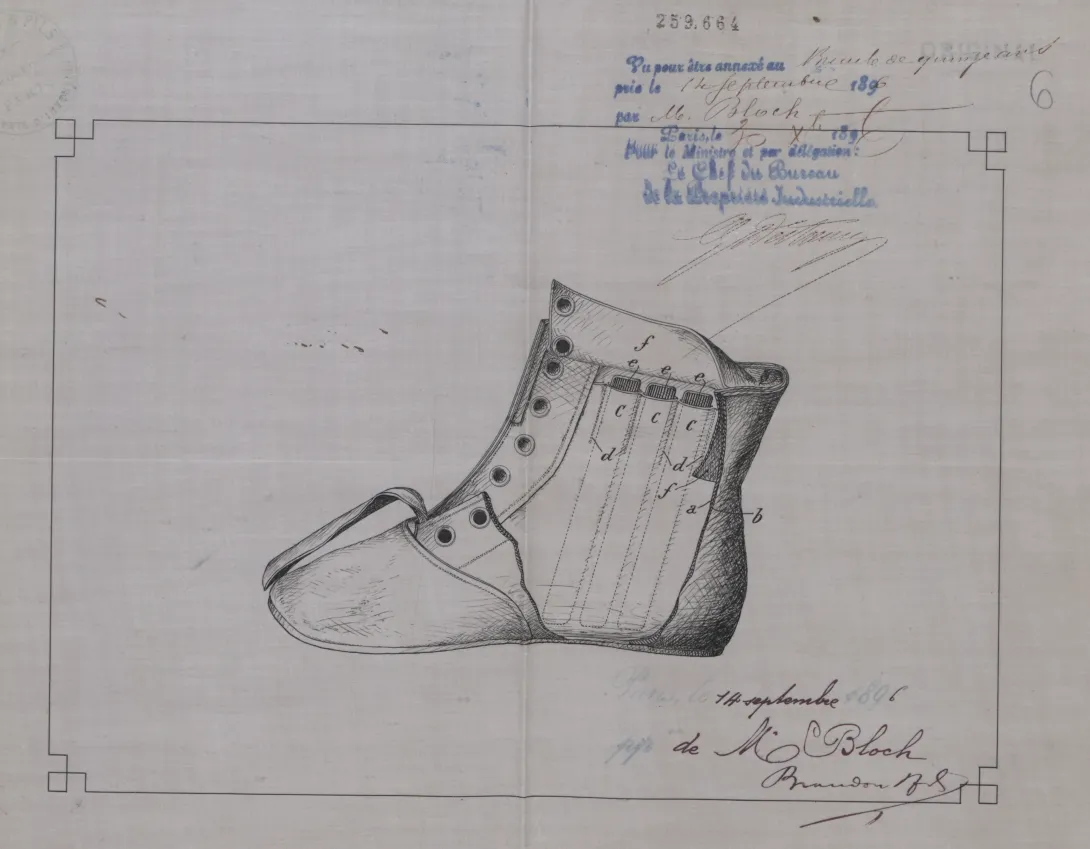 259.664
ORIGINAL
6
Vu pour être annexé au Brevet de quinze ans
pris le 14 septembre 1896
par M. Bloch
Paris, le 189
Pour le Ministre et par délégation:
Le Chef du Bureau
de la Propriété Industrielle
f
e e e
c c c
d d
f
a b
Paris, le 14 septembre 1896
de Mr Bloch
Brandon